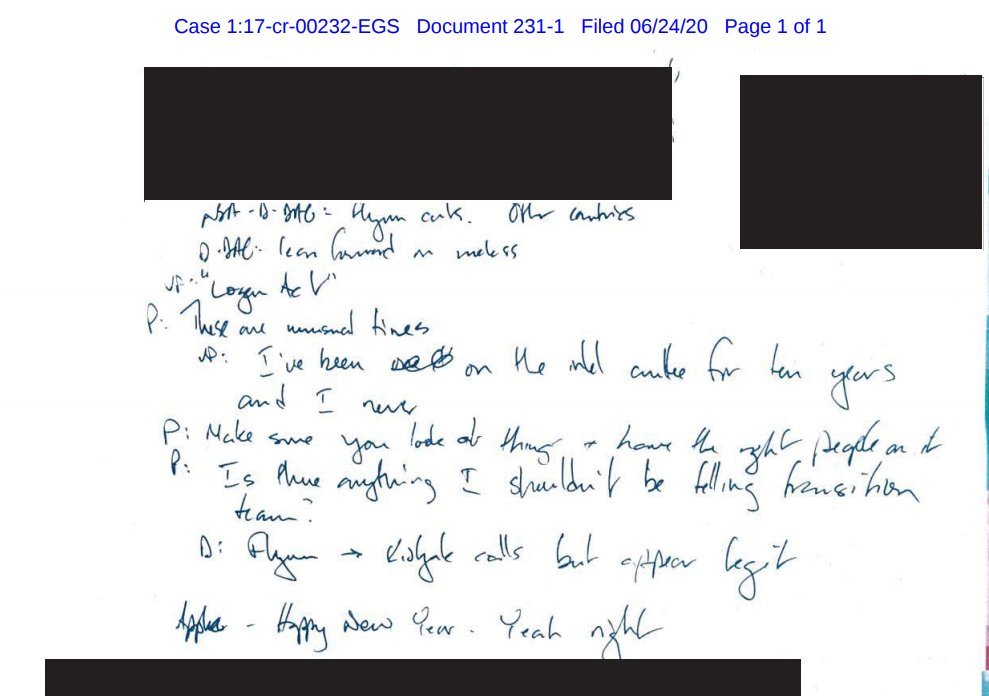 Case 1:17-cr-00232-EGS Document 231-1 Filed 06/24/20 Page 1 of 1
NSA-D-DAG: Flynn cuts. Other countries
D-DAG: lean forward on unclass
VP: "Logan Act"
P: These are unusual times
VP: I've been on the intel cmte for ten years
and I never
P: Make sure you look at things + have the right people on it
P: Is there anything I shouldn't be telling transition
team?
D: Flynn → Kislyak calls but appear legit
- Happy New Year. Yeah right